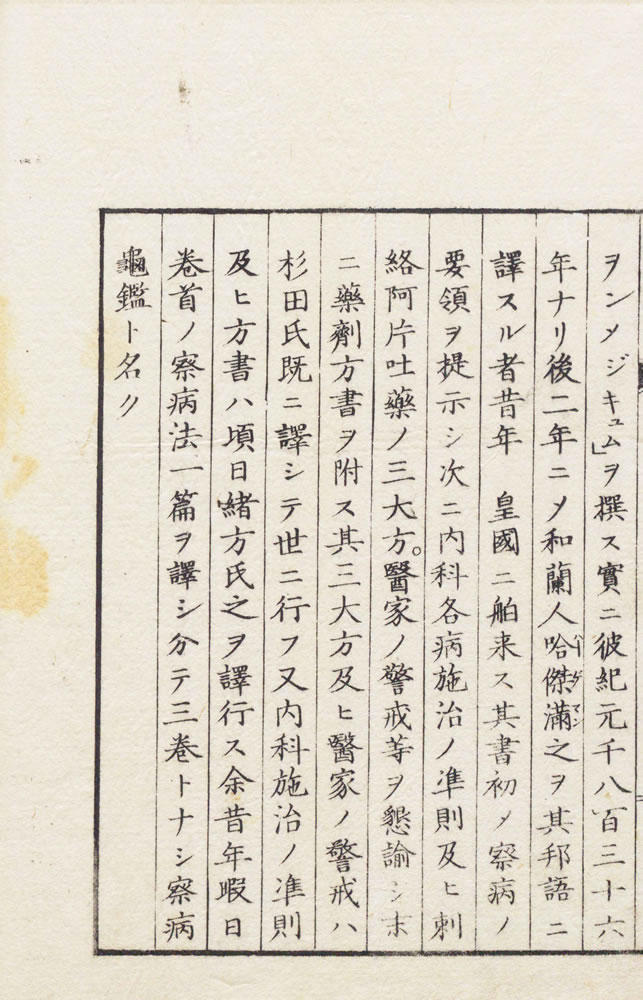 ヲンメジキュム」ヲ撰ス實ニ彼紀元千八百三十六
年ナリ後二年ニメ和蘭人哈傑滿之ヲ其邦語ニ
ハーゲマン
譯スル者昔年　皇國ニ舶来ス其書初メ察病ノ
要領ヲ提示シ次ニ内科各病施治ノ凖則及ヒ刺
絡阿片吐藥ノ三大方。醫家ノ警戒等ヲ懇諭シ末
ニ藥劑方書ヲ附ス其三大方及ヒ醫家ノ警戒ハ
杉田氏既ニ譯シテ世ニ行フ又内科施治ノ凖則
及ヒ方書ハ頃日緒方氏之ヲ譯行ス余昔年暇日
卷首ノ察病法一篇ヲ譯シ分テ三卷トナシ察病
龜鑑ト名ク